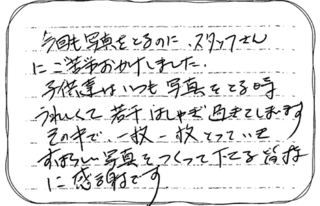 今回も写真をとるのに、スタッフさん
にご苦労おかけしました。
子供達はいつも写真をとる時
うれしくて若干はしゃぎ過ぎてしまいます
その中で、一枚一枚とっていき
すばらしい写真をつくって下さる皆様
に感謝です